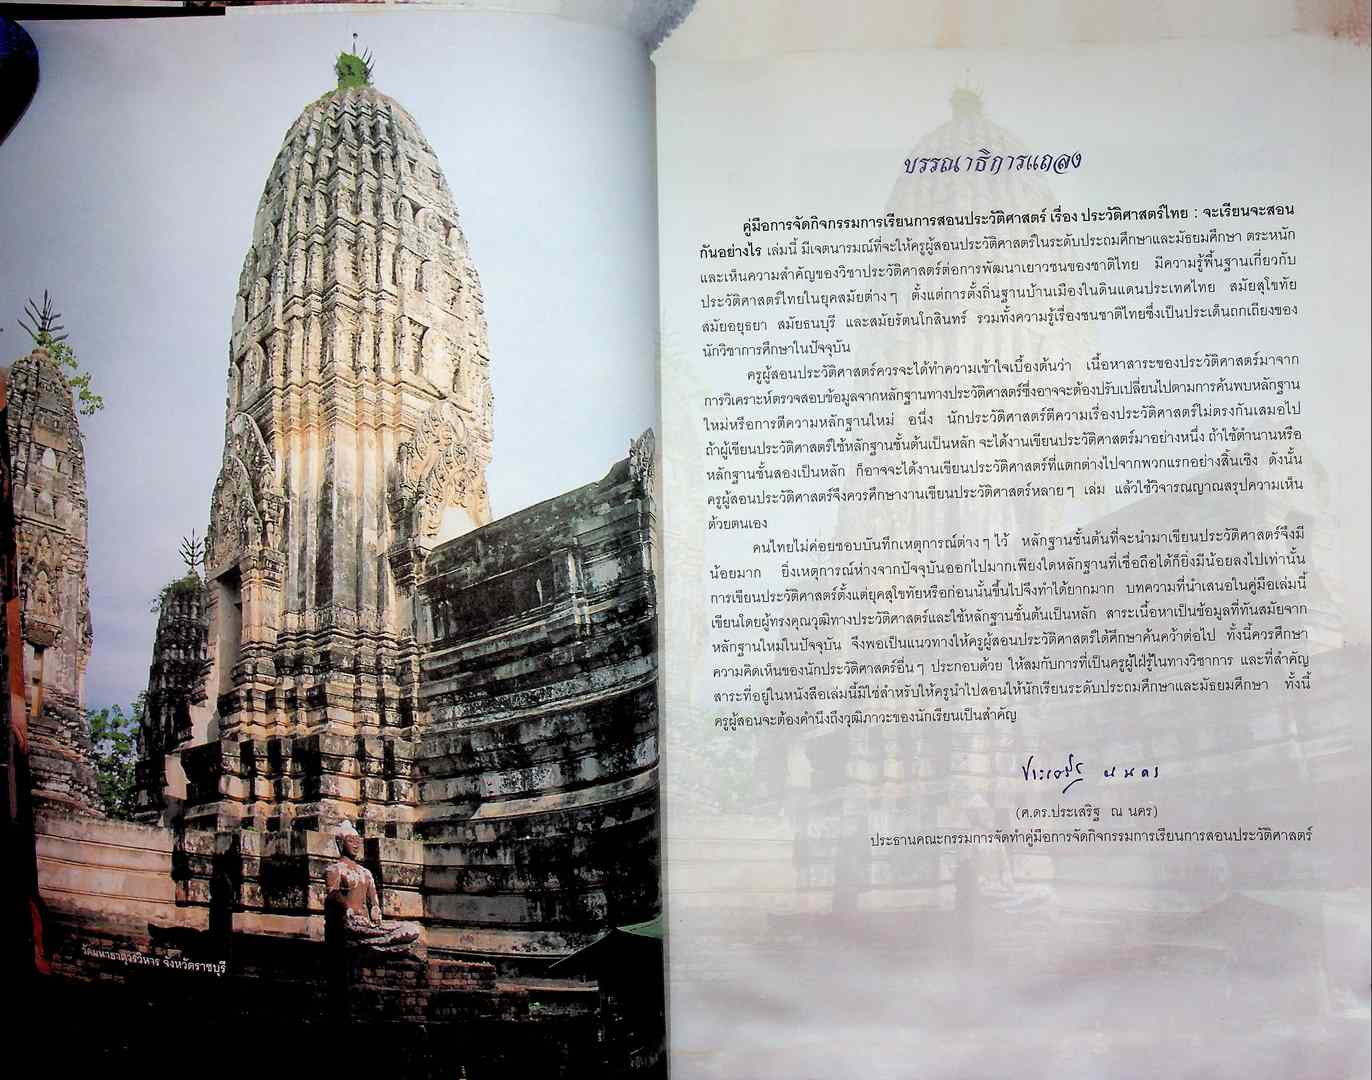 วัดมหาธาตุวรวิหาร จังหวัดราชบุรี
บรรณาธิการแถลง
คู่มือการจัดกิจกรรมการเรียนการสอนประวัติศาสตร์ เรื่อง ประวัติศาสตร์ไทย : จะเรียนจะสอน
กันอย่างไร เล่มนี้ มีเจตนารมณ์ที่จะให้ครูผู้สอนประวัติศาสตร์ในระดับประถมศึกษาและมัธยมศึกษา ตระหนัก
และเห็นความสำคัญของวิชาประวัติศาสตร์ต่อการพัฒนาเยาวชนของชาติไทย มีความรู้พื้นฐานเกี่ยวกับ
ประวัติศาสตร์ไทยในยุคสมัยต่าง ๆ ตั้งแต่การตั้งถิ่นฐานบ้านเมืองในดินแดนประเทศไทย สมัยสุโขทัย
สมัยอยุธยา สมัยธนบุรี และสมัยรัตนโกสินทร์ รวมทั้งความรู้เรื่องชนชาติไทยซึ่งเป็นประเด็นถกเถียงของ
นักวิชาการศึกษาในปัจจุบัน
ครูผู้สอนประวัติศาสตร์ควรจะได้ทำความเข้าใจเบื้องต้นว่า เนื้อหาสาระของประวัติศาสตร์มาจาก
การวิเคราะห์ตรวจสอบข้อมูลจากหลักฐานทางประวัติศาสตร์ซึ่งอาจจะต้องปรับเปลี่ยนไปตามการค้นพบหลักฐาน
ใหม่หรือการตีความหลักฐานใหม่ อนึ่ง นักประวัติศาสตร์ตีความเรื่องประวัติศาสตร์ไม่ตรงกันเสมอไป
ถ้าผู้เขียนประวัติศาสตร์ใช้หลักฐานชั้นต้นเป็นหลัก จะได้งานเขียนประวัติศาสตร์มาอย่างหนึ่ง ถ้าใช้ตำนานหรือ
หลักฐานชั้นสองเป็นหลัก ก็อาจจะได้งานเขียนประวัติศาสตร์ที่แตกต่างไปจากพวกแรกอย่างสิ้นเชิง ดังนั้น
ครูผู้สอนประวัติศาสตร์จึงควรศึกษางานเขียนประวัติศาสตร์หลาย ๆ เล่ม แล้วใช้วิจารณญาณสรุปความเห็น
ด้วยตนเอง
คนไทยไม่ค่อยชอบบันทึกเหตุการณ์ต่าง ๆ ไว้ หลักฐานชั้นต้นที่จะนำมาเขียนประวัติศาสตร์จึงมี
น้อยมาก ยิ่งเหตุการณ์ห่างจากปัจจุบันออกไปมากเพียงใดหลักฐานที่เชื่อถือได้ก็ยิ่งมีน้อยลงไปเท่านั้น
การเขียนประวัติศาสตร์ตั้งแต่ยุคสุโขทัยหรือก่อนนั้นขึ้นไปจึงทำได้ยากมาก บทความที่นำเสนอในคู่มือเล่มนี้
เขียนโดยผู้ทรงคุณวุฒิทางประวัติศาสตร์และใช้หลักฐานชั้นต้นเป็นหลัก สาระเนื้อหาเป็นข้อมูลที่ทันสมัยจาก
หลักฐานใหม่ในปัจจุบัน จึงพอเป็นแนวทางให้ครูผู้สอนประวัติศาสตร์ได้ศึกษาค้นคว้าต่อไป ทั้งนี้ควรศึกษา
ความคิดเห็นของนักประวัติศาสตร์อื่น ๆ ประกอบด้วย ให้สมกับการที่เป็นครูผู้ใฝ่รู้ในทางวิชาการ และที่สำคัญ
สาระที่อยู่ในหนังสือเล่มนี้มิใช่สำหรับให้ครูนำไปสอนให้นักเรียนระดับประถมศึกษาและมัธยมศึกษา ทั้งนี้
ครูผู้สอนจะต้องคำนึงถึงวุฒิภาวะของนักเรียนเป็นสำคัญ
ประเสริฐ ณ นคร
(ศ.ดร.ประเสริฐ ณ นคร)
ประธานคณะกรรมการจัดทำคู่มือการจัดกิจกรรมการเรียนการสอนประวัติศาสตร์